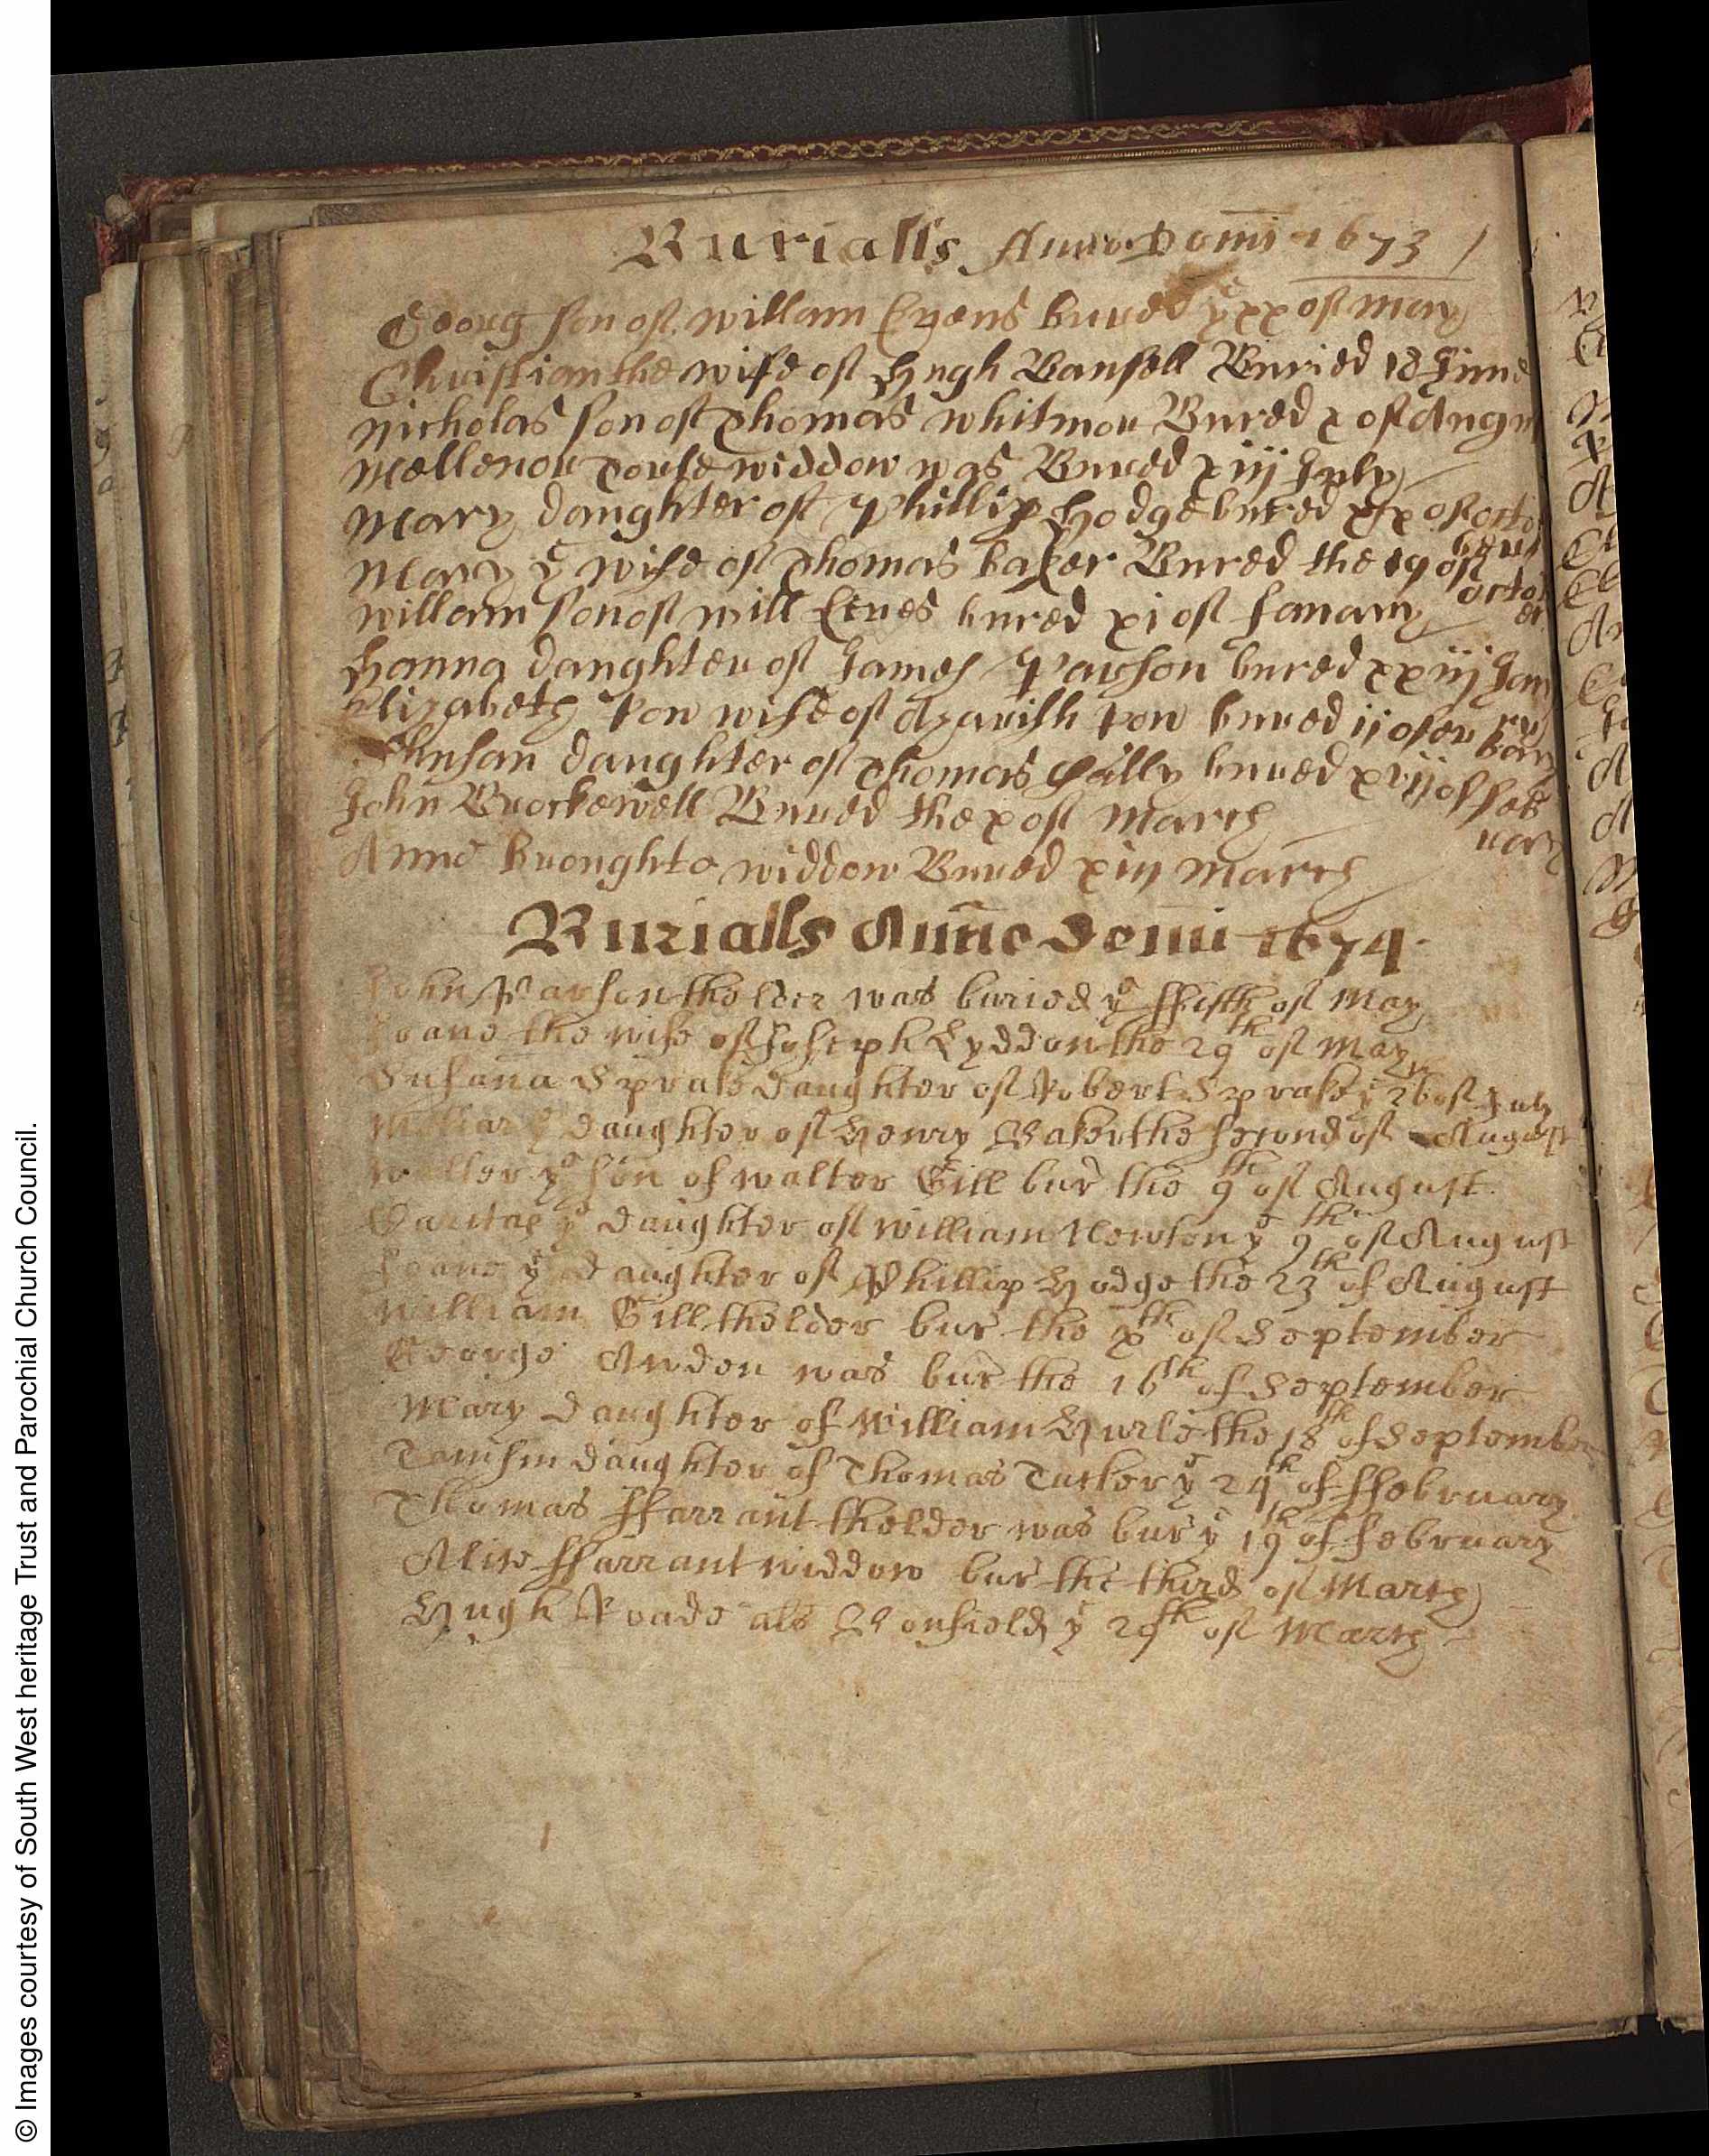 Burialls Anno Domi 1673
Georg son of willam Evens bured ye xx of may
Christian the wife of Hugh Bansell Buried 18 June
Nicholas son of Thomas whitmor Bured x of Augu
Mellenor widdow was Bured xiij July
Mary daughter of Phillip Hodge bured xix of octo
ber
Mary ye wife of Thomas baker Bured the 19 of
octo
er
willam son of will Eves bured xi of Janary
Hanna daughter of James Parson bured xxiij Jan
ry
Elizabeth wife of bured ij of
bary
Shusan daughter of Thomas bured xvij of feb
uary
John Brockewell Bured the x of March
Anne Broughto widdow Bured xiij March
Burialls Anno Domi 1674
John Parson thelder was buried ye ffifth of May
Joane the wife of Joseph Lyddon the 29th of May
Susana Sprake daughter of Robert Sprake ye 26 of July
daughter of Henry Baker the second of August
Walter ye son of walter Gill bur the 9th of August
ye daughter of William Newton ye 9th of August
Joane ye daughter of Phillip Hodge the 23th of August
William Gill thelder bur the xth of September
George Arden was bur the 16th of September
Mary daughter of William Hurle the 18th of September
Tamsin daughter of Thomas Tucker ye 24th of ffebruary
Thomas ffarrant thelder was bur ye 19th of february
Alice ffarrant widdow bur the third of March
Hugh Roade als Bonfield ye 29th of March
© Images courtesy of South West heritage Trust and Parochial Church Council.